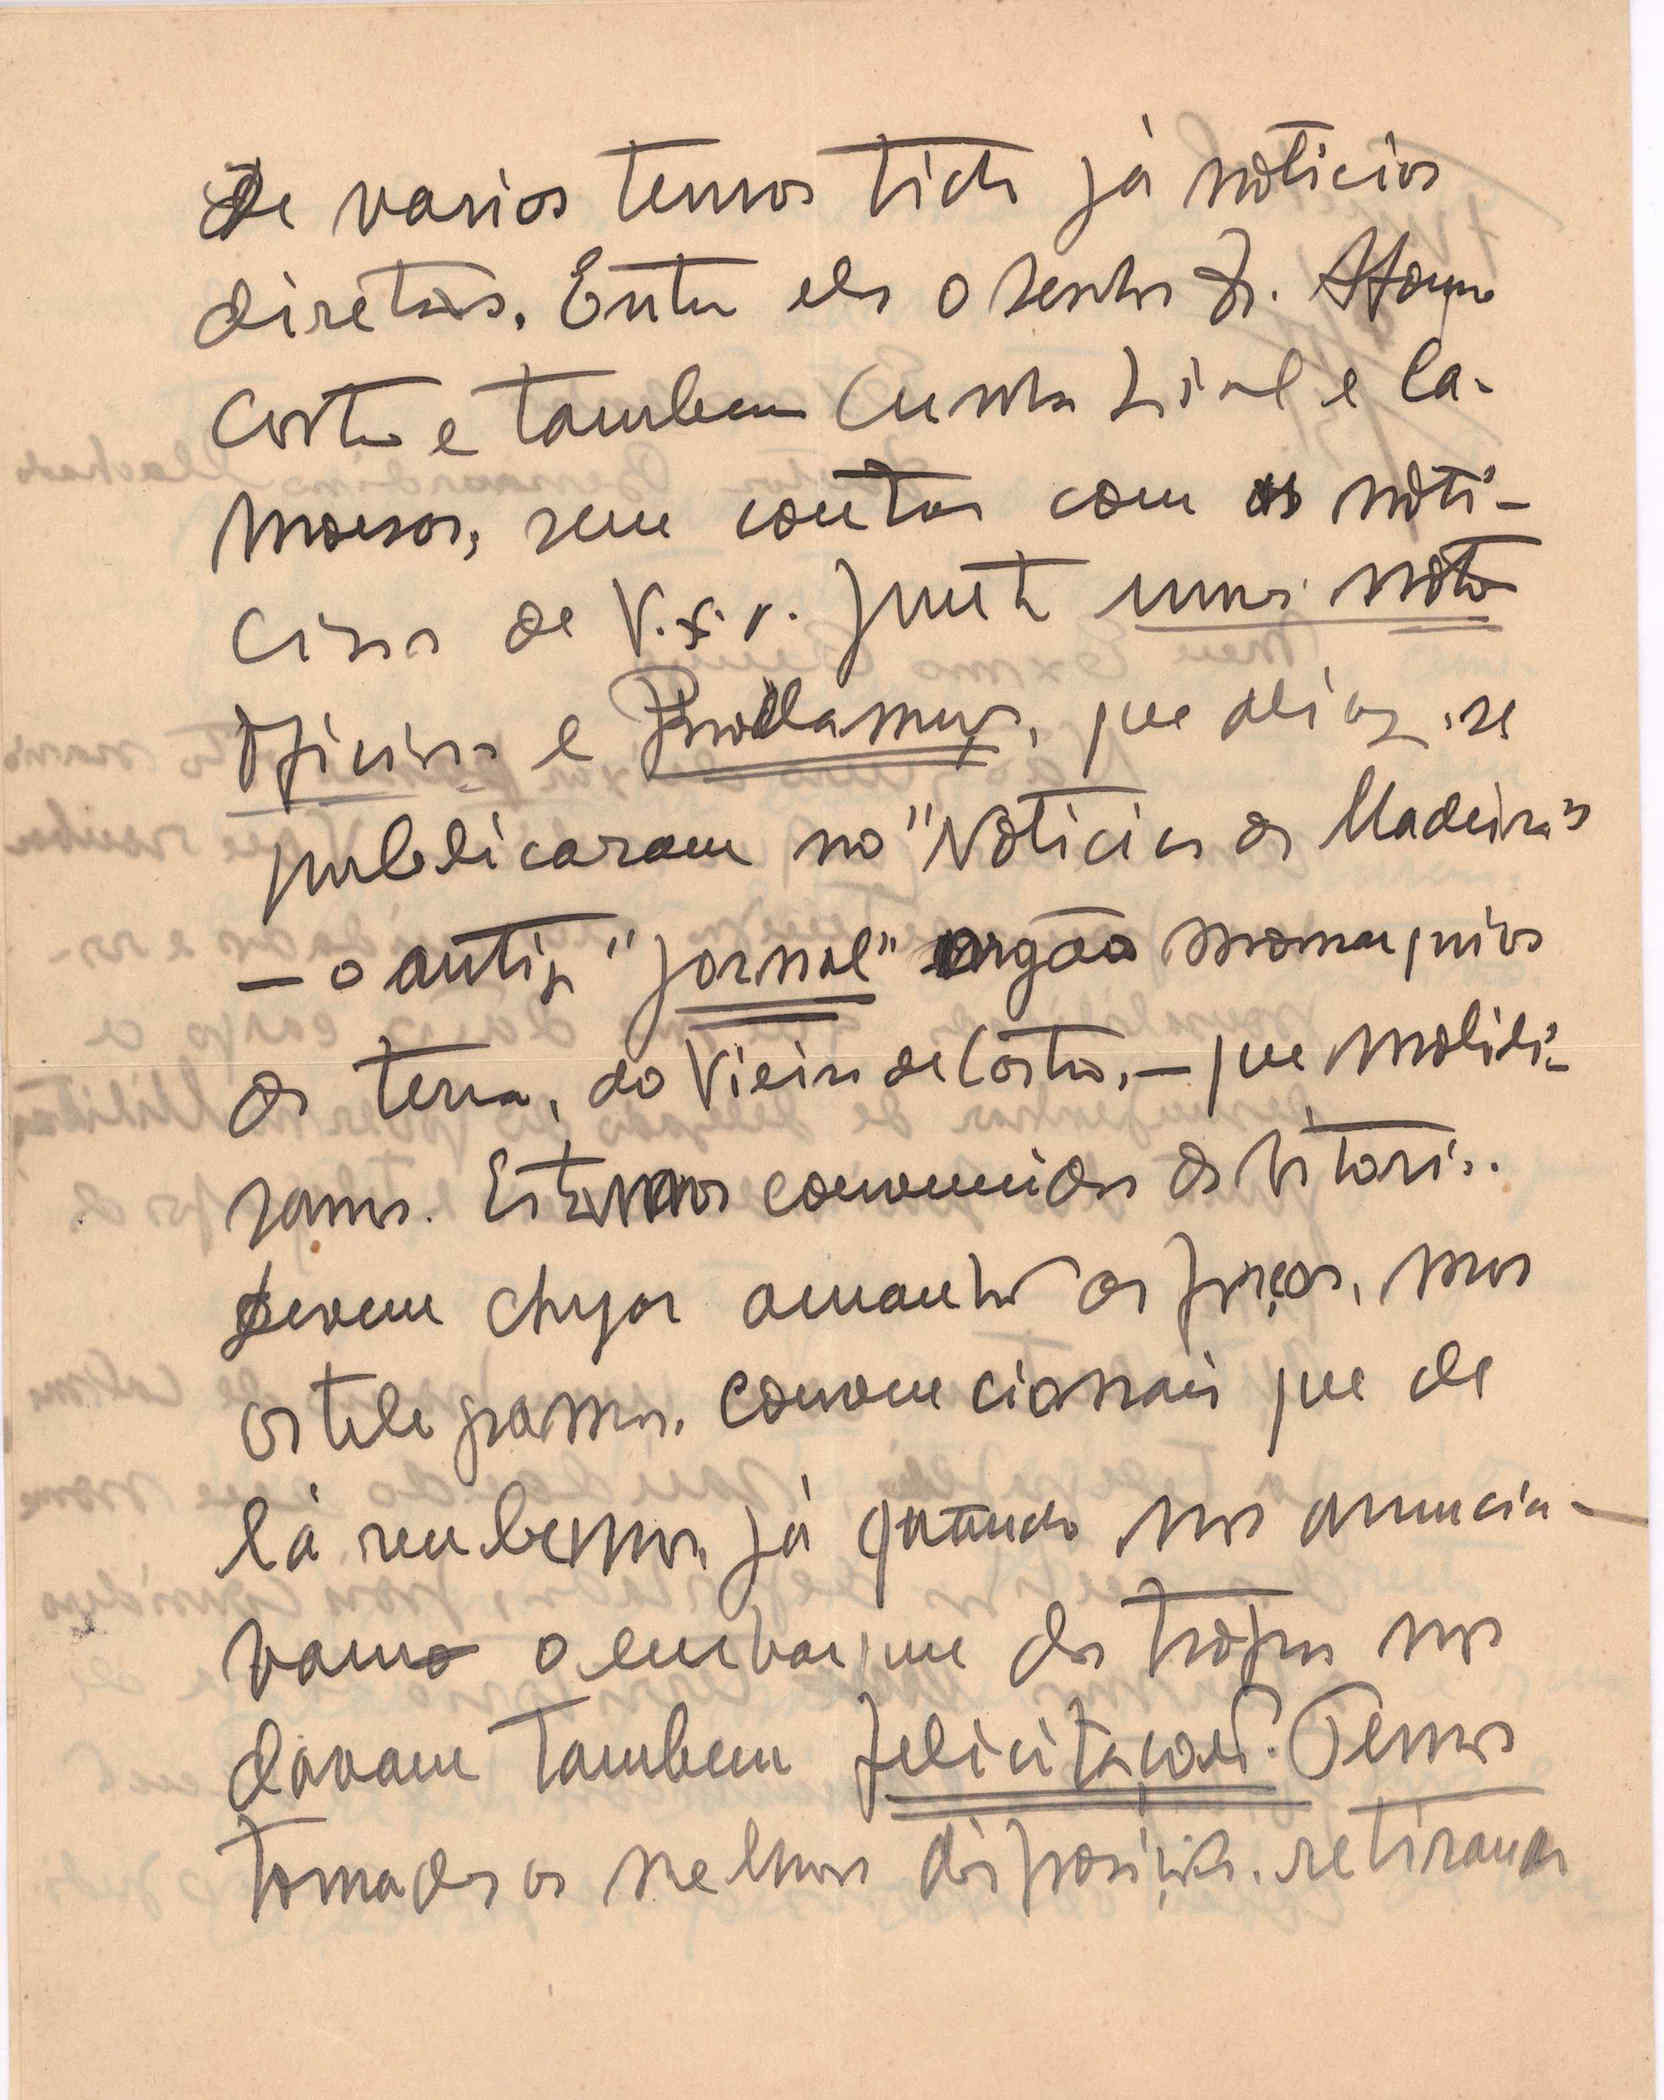 De varios temos tido já noticias
diretas. Entre eles o senhor Dr. Afonso
Costa e tambem Cunha Lial e Ca-
moesas, sem contar com as noti-
cias de V. Ex.ª. Junto umas notas
oficiosas e Proclamações, que aliaz se
publicaram no "Noticias da Madeira"
— o antigo "Jornal" orgão monarquico
da terra, do Vieira de Castro, — que mobili-
samos. Estamos convencidos da vitoria.
Devem chegar amanhã as forças, mas
os telegramas convencionais que de
lá recebemos, já quando nos anuncia-
vam o embarque das tropas nos
davam tambem felicitações. Temos
tomadas as melhores disposições, retirando